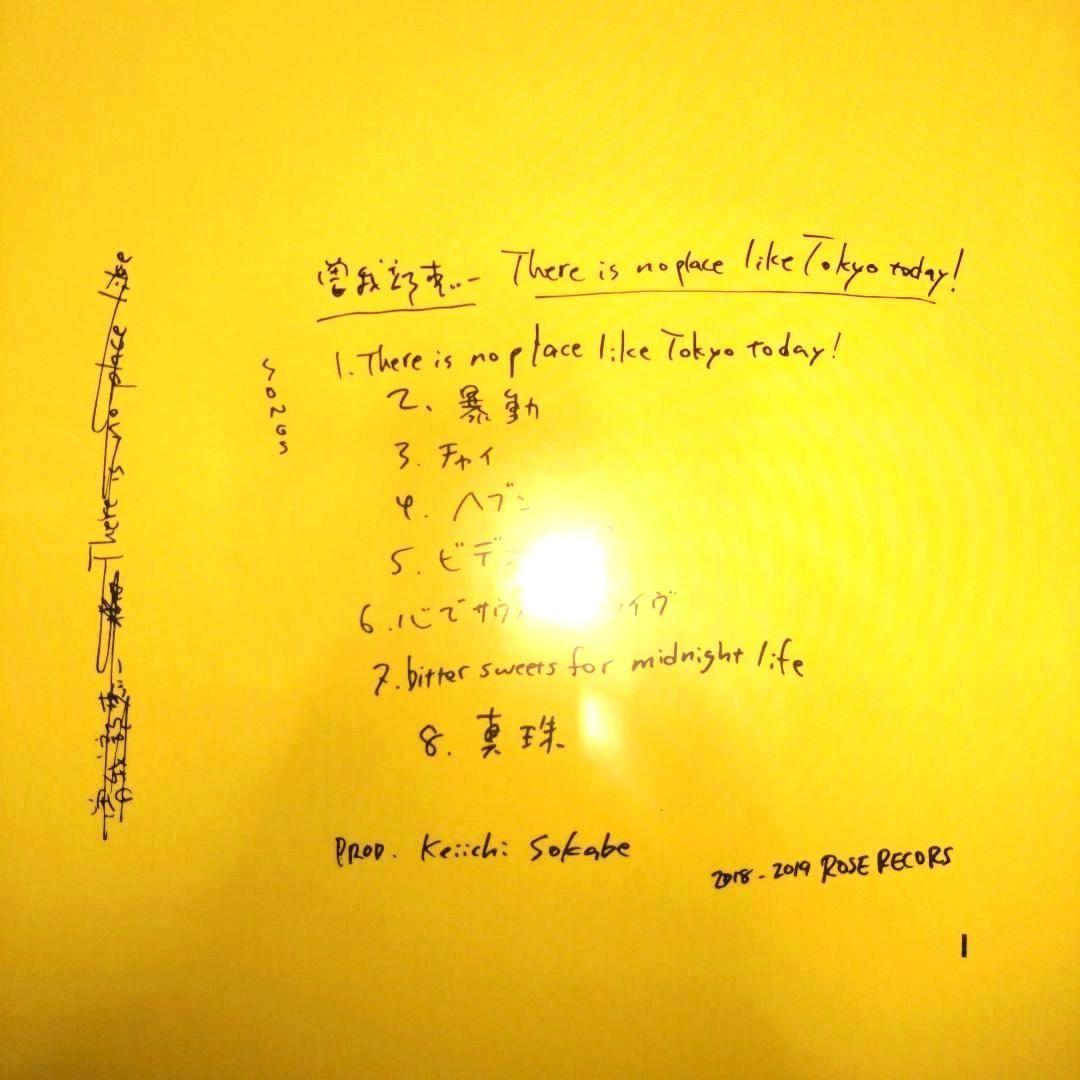 曽我部恵一 There is no place like Tokyo today!
1. There is no place like Tokyo today!
2. 暴動
3. チャイ
4. ヘブン
5. ビデ
6. 心でサウ イヴ
7. bitter sweets for midnight life
8. 真珠
PROD. Keiichi Sokabe
2018-2019 ROSE RECORS
There is no place like